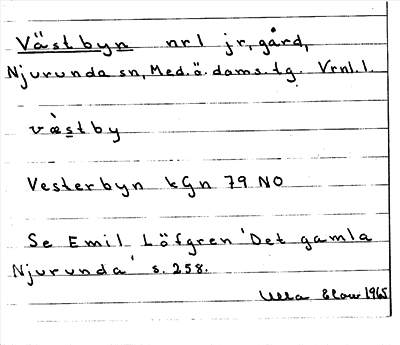 Västbyn nr1 jr, gård,
Njurunda sn, Med.ö. doms. tg. Vrnl.1.
væ̀stby
Vesterbyn kGn 79 NO
Se Emil Löfgren 'Det gamla
Njurunda' s. 258.
Ulla 1965